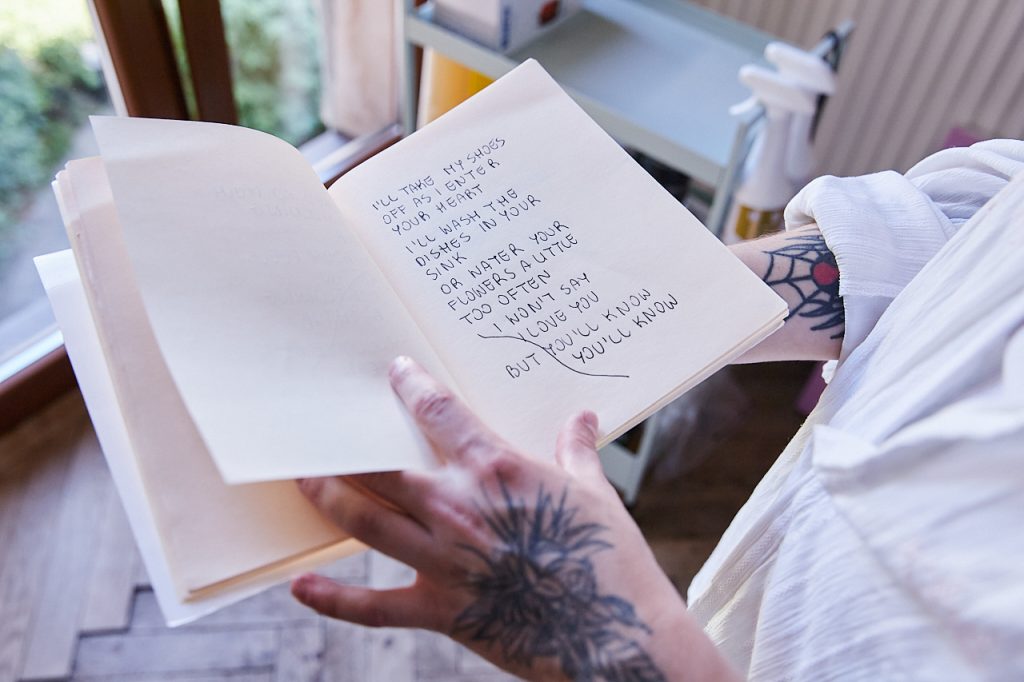 I'LL TAKE MY SHOES
OFF AS I ENTER
YOUR HEART
I'LL WASH THE
DISHES IN YOUR
SINK
OR WATER YOUR
FLOWERS A LITTLE
TOO OFTEN
I WON'T SAY
I LOVE YOU
BUT YOU'LL KNOW
YOU'LL KNOW